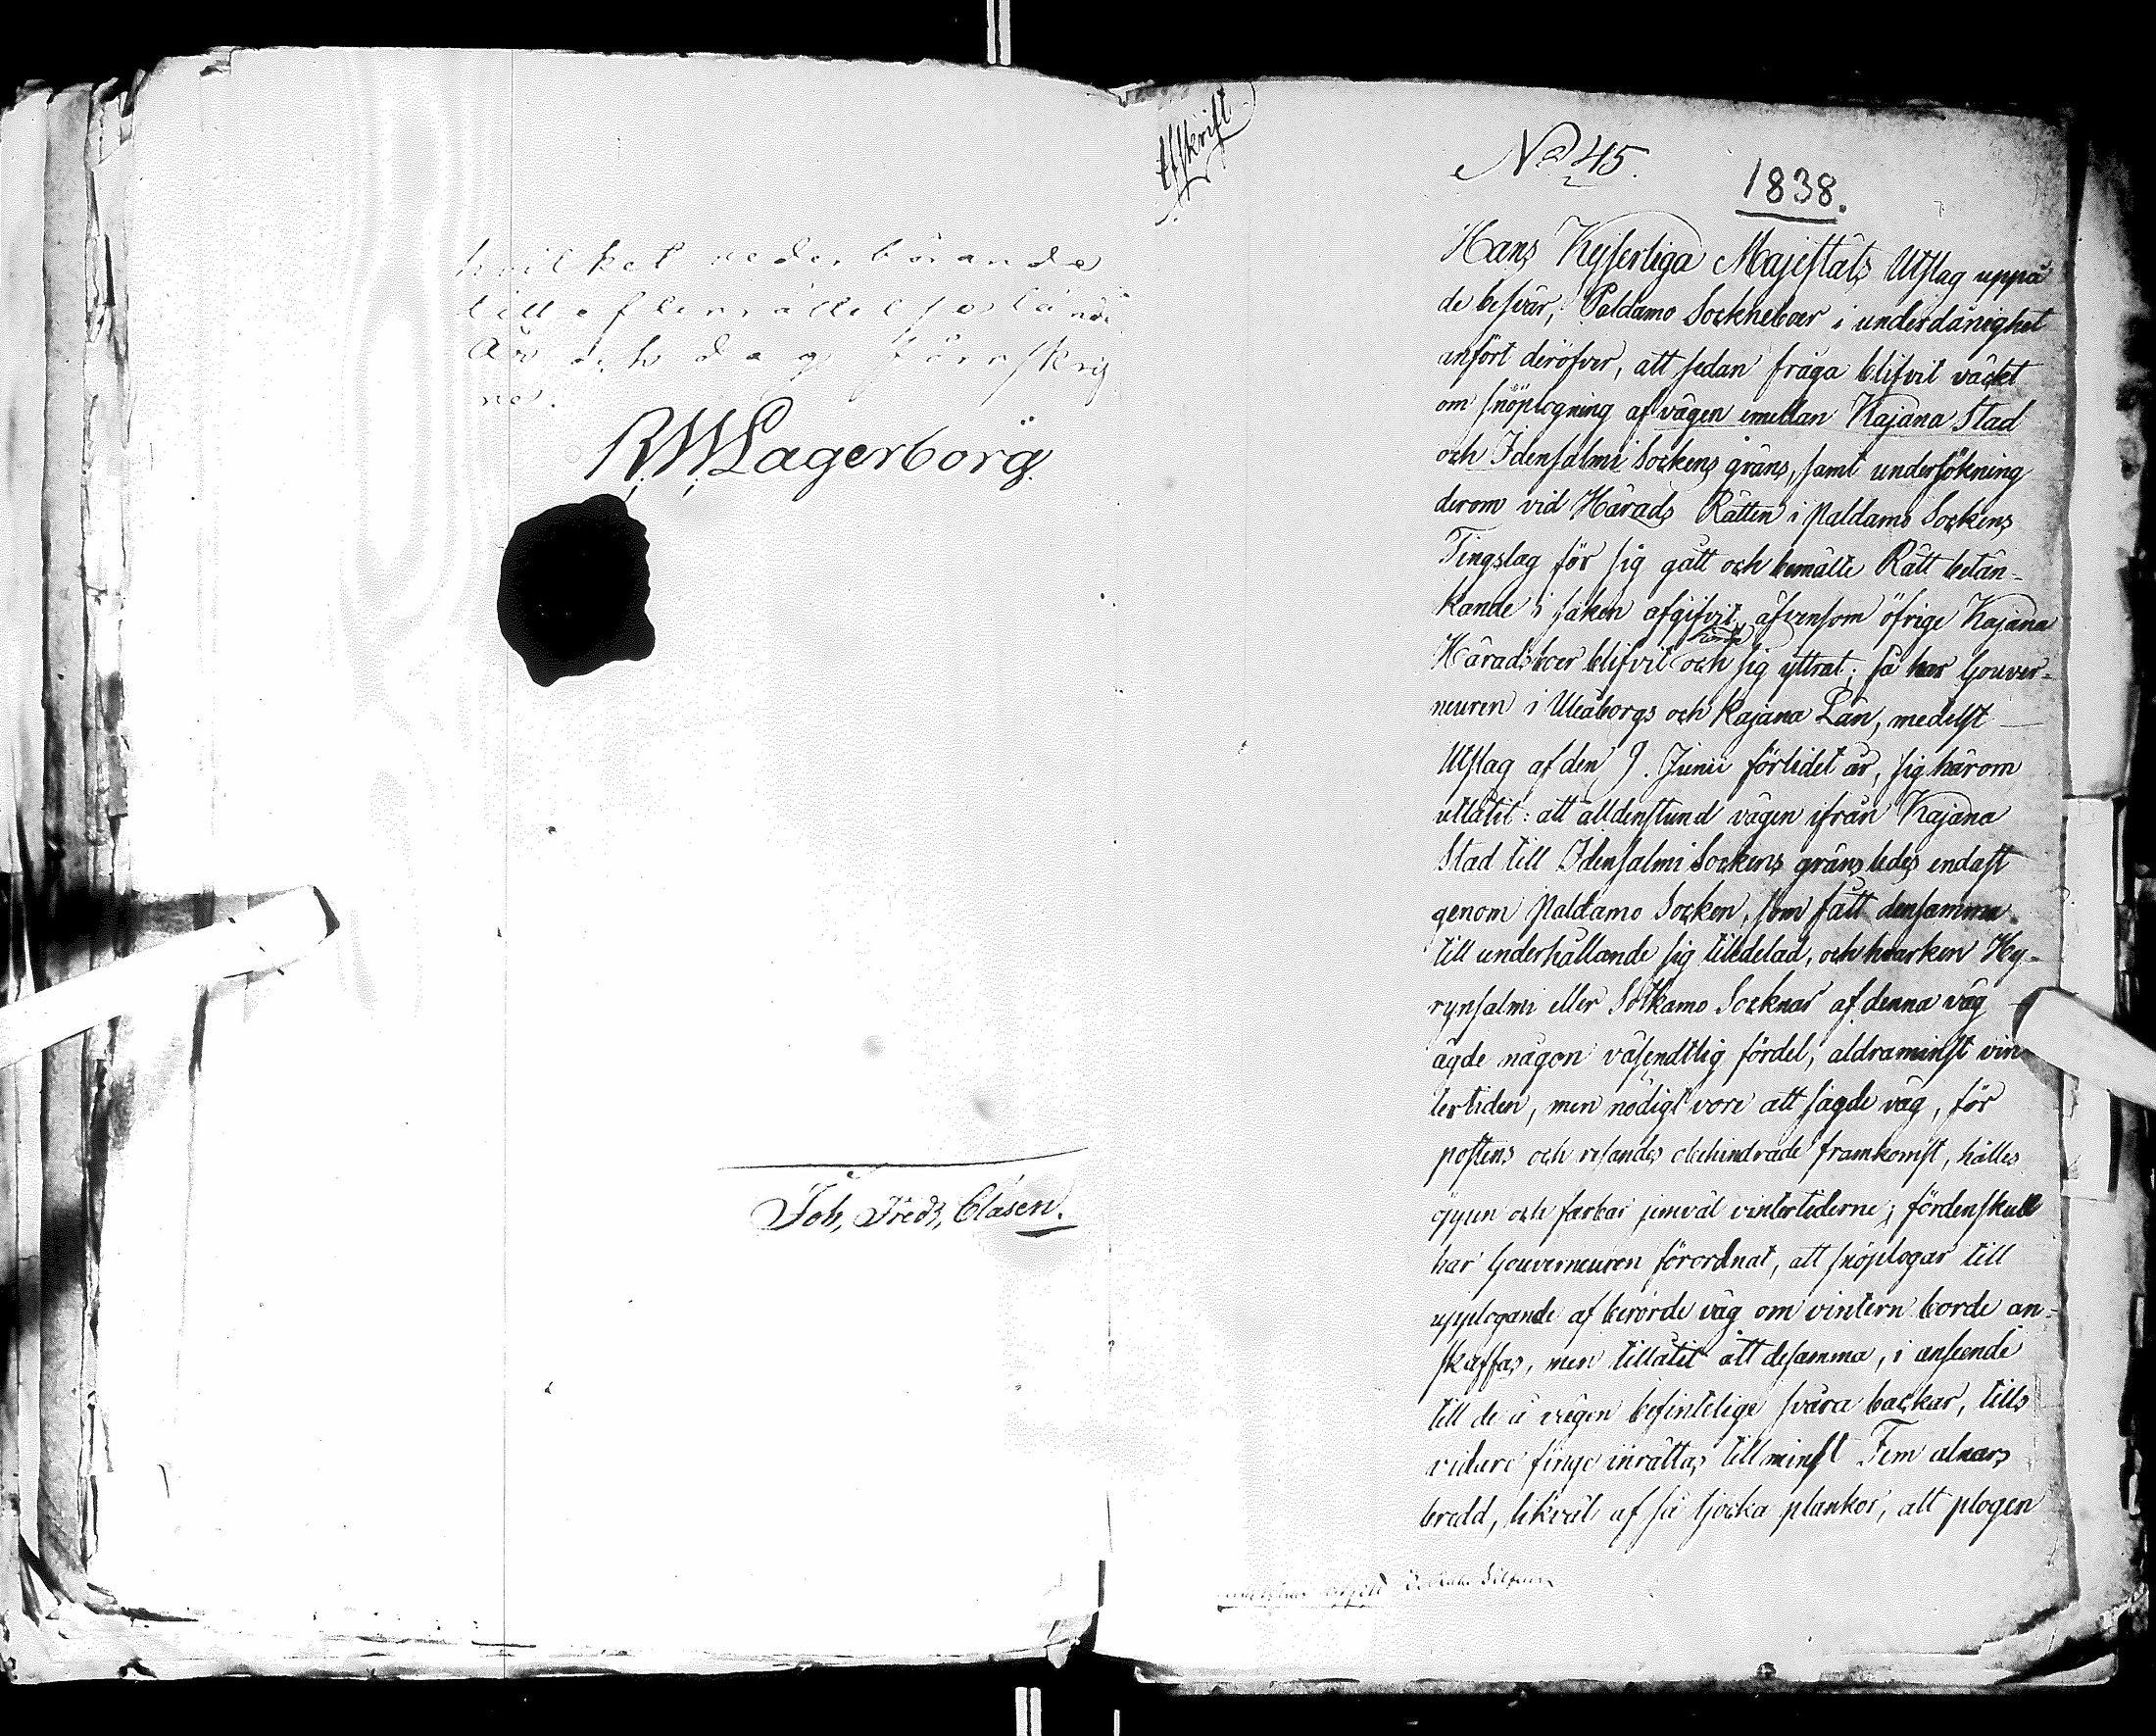 hvilket vederbörande
till efterrättelse länder
År och dag förrskrif
net.
R. W. Lagerborg.
Joh, Fredr, Clasen.
Afskrift
No 45.
1838.
Hans Kejserliga Majestäts Utslag uppå
de besvär, Paldamo Sockneboer i underdånighet
anfört deröfver, att sedan fråga blifvit väckt
om snöplogning af vägen emellan Kajana Stad
och Idensalmi Sockens gräns, samt undersökning
derom vid Härads Rätten i Paldamo Sockens
Tingslag för sig gått och bemälte Rätt betän-
kande i saken afgifvit, äfvensom öfrige Kajana
Häradsboer blifvit hörde och sig yttrat; så har Gouver-
neuren i Uleåborgs och Kajana Län, medelst
Utslag af den 9. Junii förlidet år, sig härom
utlåtit: att alldenstund vägen ifrån Kajana
Stad till Idensalmi Sockens gräns ledes endast
genom Paldamo Socken, som fått densamma
till underhållande sig tilldelad, och hvarken Hy-
rynsalmi eller Sotkamo Socknar af denna väg
ägde någon väsendtlig fördel, aldraminst vin
tertiden, men nödigt vore att sagde väg, för
postens och resandes obehindrade framkomst, hålles
öppen och farbar jemväl vintertiderne; fördenskull
har Gouverneuren förordnat, att snöplogar till
upplogande af berörde väg om vintern borde an-
skaffas, men tillåtit att desamma, i anseende
till de å vägen befintelige svåra backar, tills
vidare finge inrättas till minst Fem alnars
bredd, likväl af så tjocka plankor, att plogen